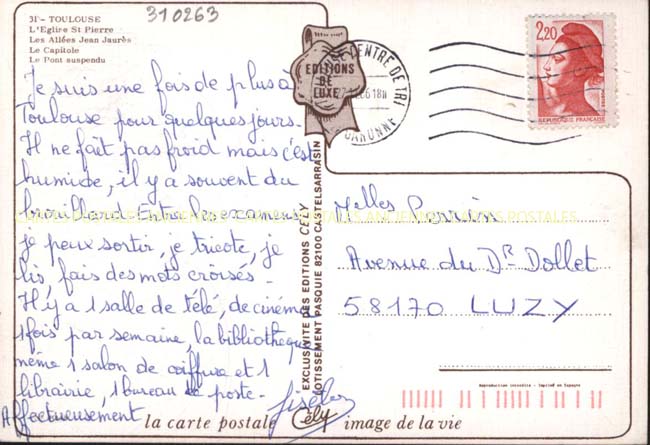 310263
31 - TOULOUSE
L'Eglise St Pierre
Les Allées Jean Jaurès
Le Capitole
Le Pont suspendu
Je suis une fois de plus à
Toulouse pour quelques jours.
Il ne fait pas froid mais c'est
humide, il y a souvent du
brouillard. Entre les examens
je peux sortir, je tricote, je
lis, fais des mots croisés.
Il y a 1 salle de télé, de cinéma
1 fois par semaine, la bibliothèque
même 1 salon de coiffure et 1
librairie, 1 bureau de poste.
Affectueusement
EDITIONS
DE
LUXE
CENTRE DE TRI
GARONNE
2,20
REPUBLIQUE FRANÇAISE
EXCLUSIVITE DES EDITIONS CELY
LOTISSEMENT PASQUIE 82100 CASTELSARRASIN
Melles Perrin
Avenue du Dr Dollet
58170 LUZY
Reproduction interdite - Imprimé en Espagne
la carte postale Cély image de la vie